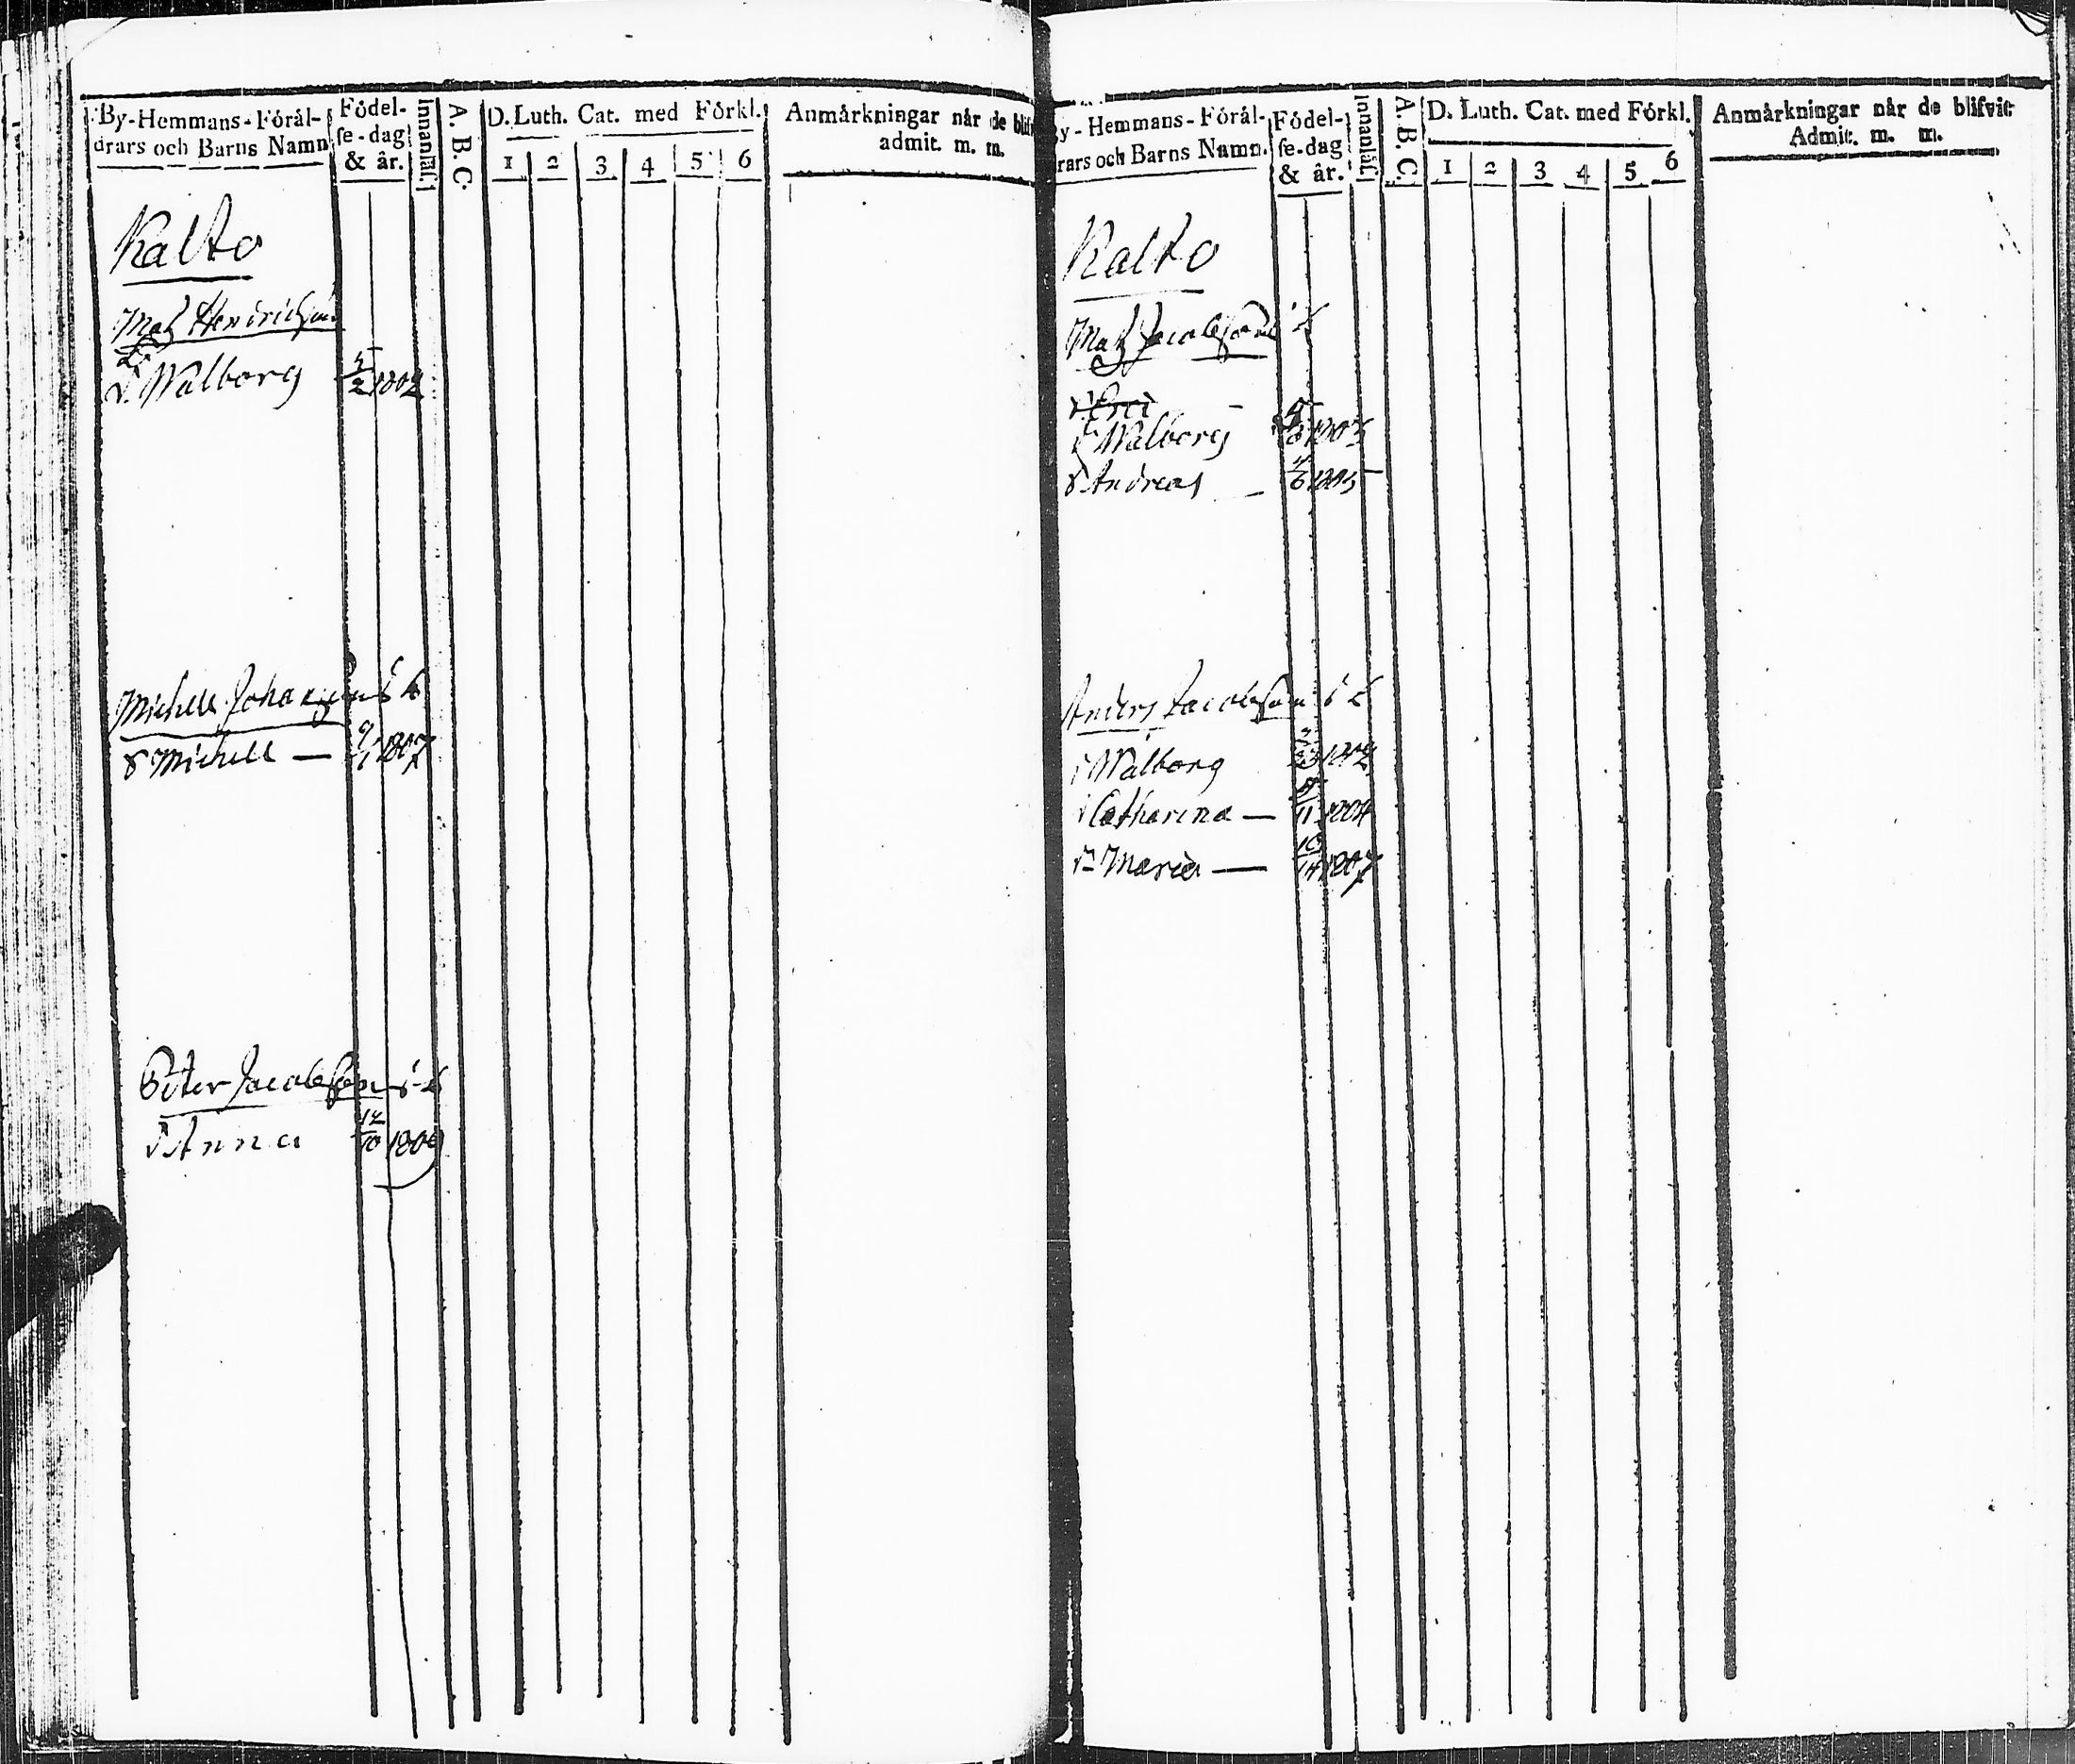 By-Hemmans-Förål-
drars och Barns Namn
Födel-
se-dag
& år.
Innanläs.
A. B. C.
D. Luth. Cat. med Förkl.
1 2 3 4 5 6
Anmärkningar når de blif
admit. m. m.
Kalto
Mats Hendrichson
d. Walborg 1802
Michell Johansson
S Michell — 9/1 1807
Peter Jacobsson
d Anna 12/10 1809
y-Hemmans-Förål-
rars och Barns Namn.
Födel-
se-dag
& år.
Innanläs.
A. B. C.
D. Luth. Cat. med Förkl.
1 2 3 4 5 6
Anmärkningar når de blifvit
Admit. m. m.
Kalto
Mats Jacobsson
d Walborg
S Andreas
Anders Jacobsson
d Walborg
d Catharina — 1804
d Maria — 1807